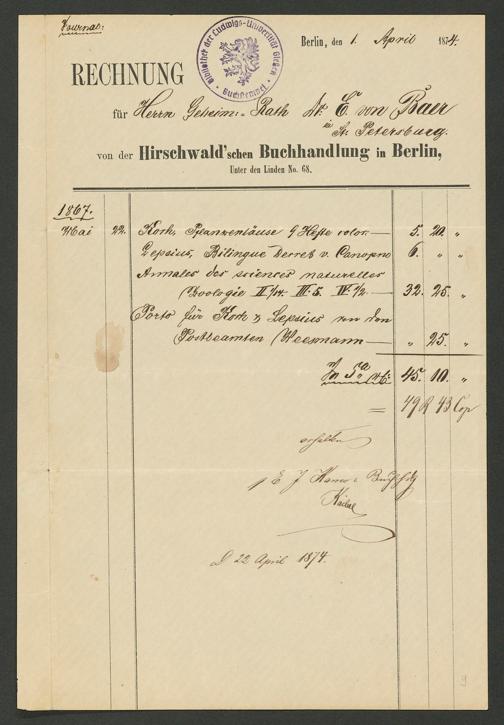 Journal:
Bibliothek der Ludwigs-Universität Gießen
Buchstempel
Berlin, den 1. April 1874.
RECHNUNG
für Herrn Geheim-Rath Dr. E. von Baer
in St. Petersburg.
von der Hirschwald'schen Buchhandlung in Berlin,
Unter den Linden No. 68.
1867.
Mai 22. Koch, Pflanzenläuse 9 Hefte color. — 5. 20. „
Lepsius, Bilingue Decret v. Canopus 6. „ „
Annales des sciences naturelles
(Zoologie II III. 5. IV. 1/2. — 32. 25. „
Porto für Koch & Lepsius von den
Postbeamten — „ 25. „
45. 10. „
= 49 R 43 Cop
erhalten
22 April 1874.